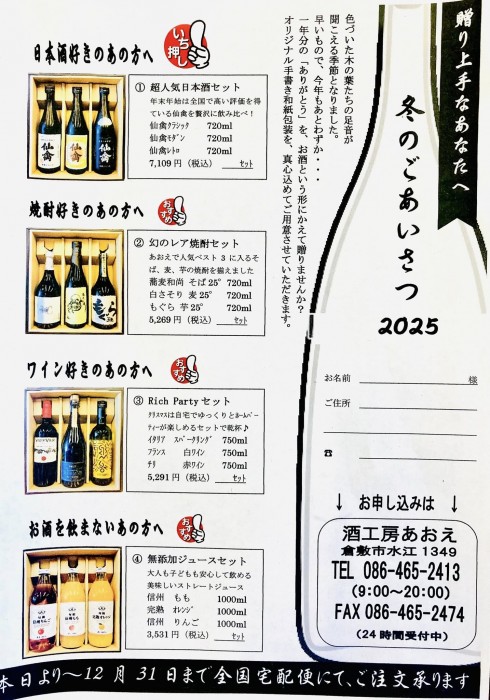 贈り上手なあなたへ
冬のごあいさつ
2025
色づいた木の葉たちの足音が
聞こえる季節となりました。
早いもので、今年もあとわずか・・・
一年分の「ありがとう」を、お酒という形にかえて贈りませんか?
オリジナル手書き和紙包装を、真心込めてご用意させていただきます。
日本酒好きのあの方へ
いち押し
① 超人気日本酒セット
年末年始は全国で高い評価を得
ている仙禽を贅沢に飲み比べ!
仙禽クラシック 720ml
仙禽モダン 720ml
仙禽レトロ 720ml
7,109円(税込) セット
仙禽
仙禽
仙禽
焼酎好きのあの方へ
おすすめ
② 幻のレア焼酎セット
あおえで人気ベスト3に入るそ
ば、麦、芋の焼酎を揃えました
蕎麦和尚 そば25° 720ml
白さそり 麦25° 720ml
もぐら 芋25° 720ml
5,269円(税込) セット
ワイン好きのあの方へ
おすすめ
③ Rich Partyセット
クリスマスは自宅でゆっくりとホームパー
ティーが楽しめるセットで乾杯♪
イタリア スパークリング 750ml
フランス 白ワイン 750ml
チリ 赤ワイン 750ml
5,291円(税込) セット
お酒を飲まないあの方へ
おすすめ
④ 無添加ジュースセット
大人も子どもも安心して飲める
美味しいストレートジュース
信州 もも 1000ml
完熟 オレンジ 1000ml
信州 りんご 1000ml
3,531円(税込) セット
お名前 様
ご住所
☎
↓ お申し込みは ↓
酒工房あおえ
倉敷市水江1349
TEL 086-465-2413
(9:00~20:00)
FAX 086-465-2474
(24時間受付中)
本日より~12月31日まで全国宅配便にて、ご注文承ります